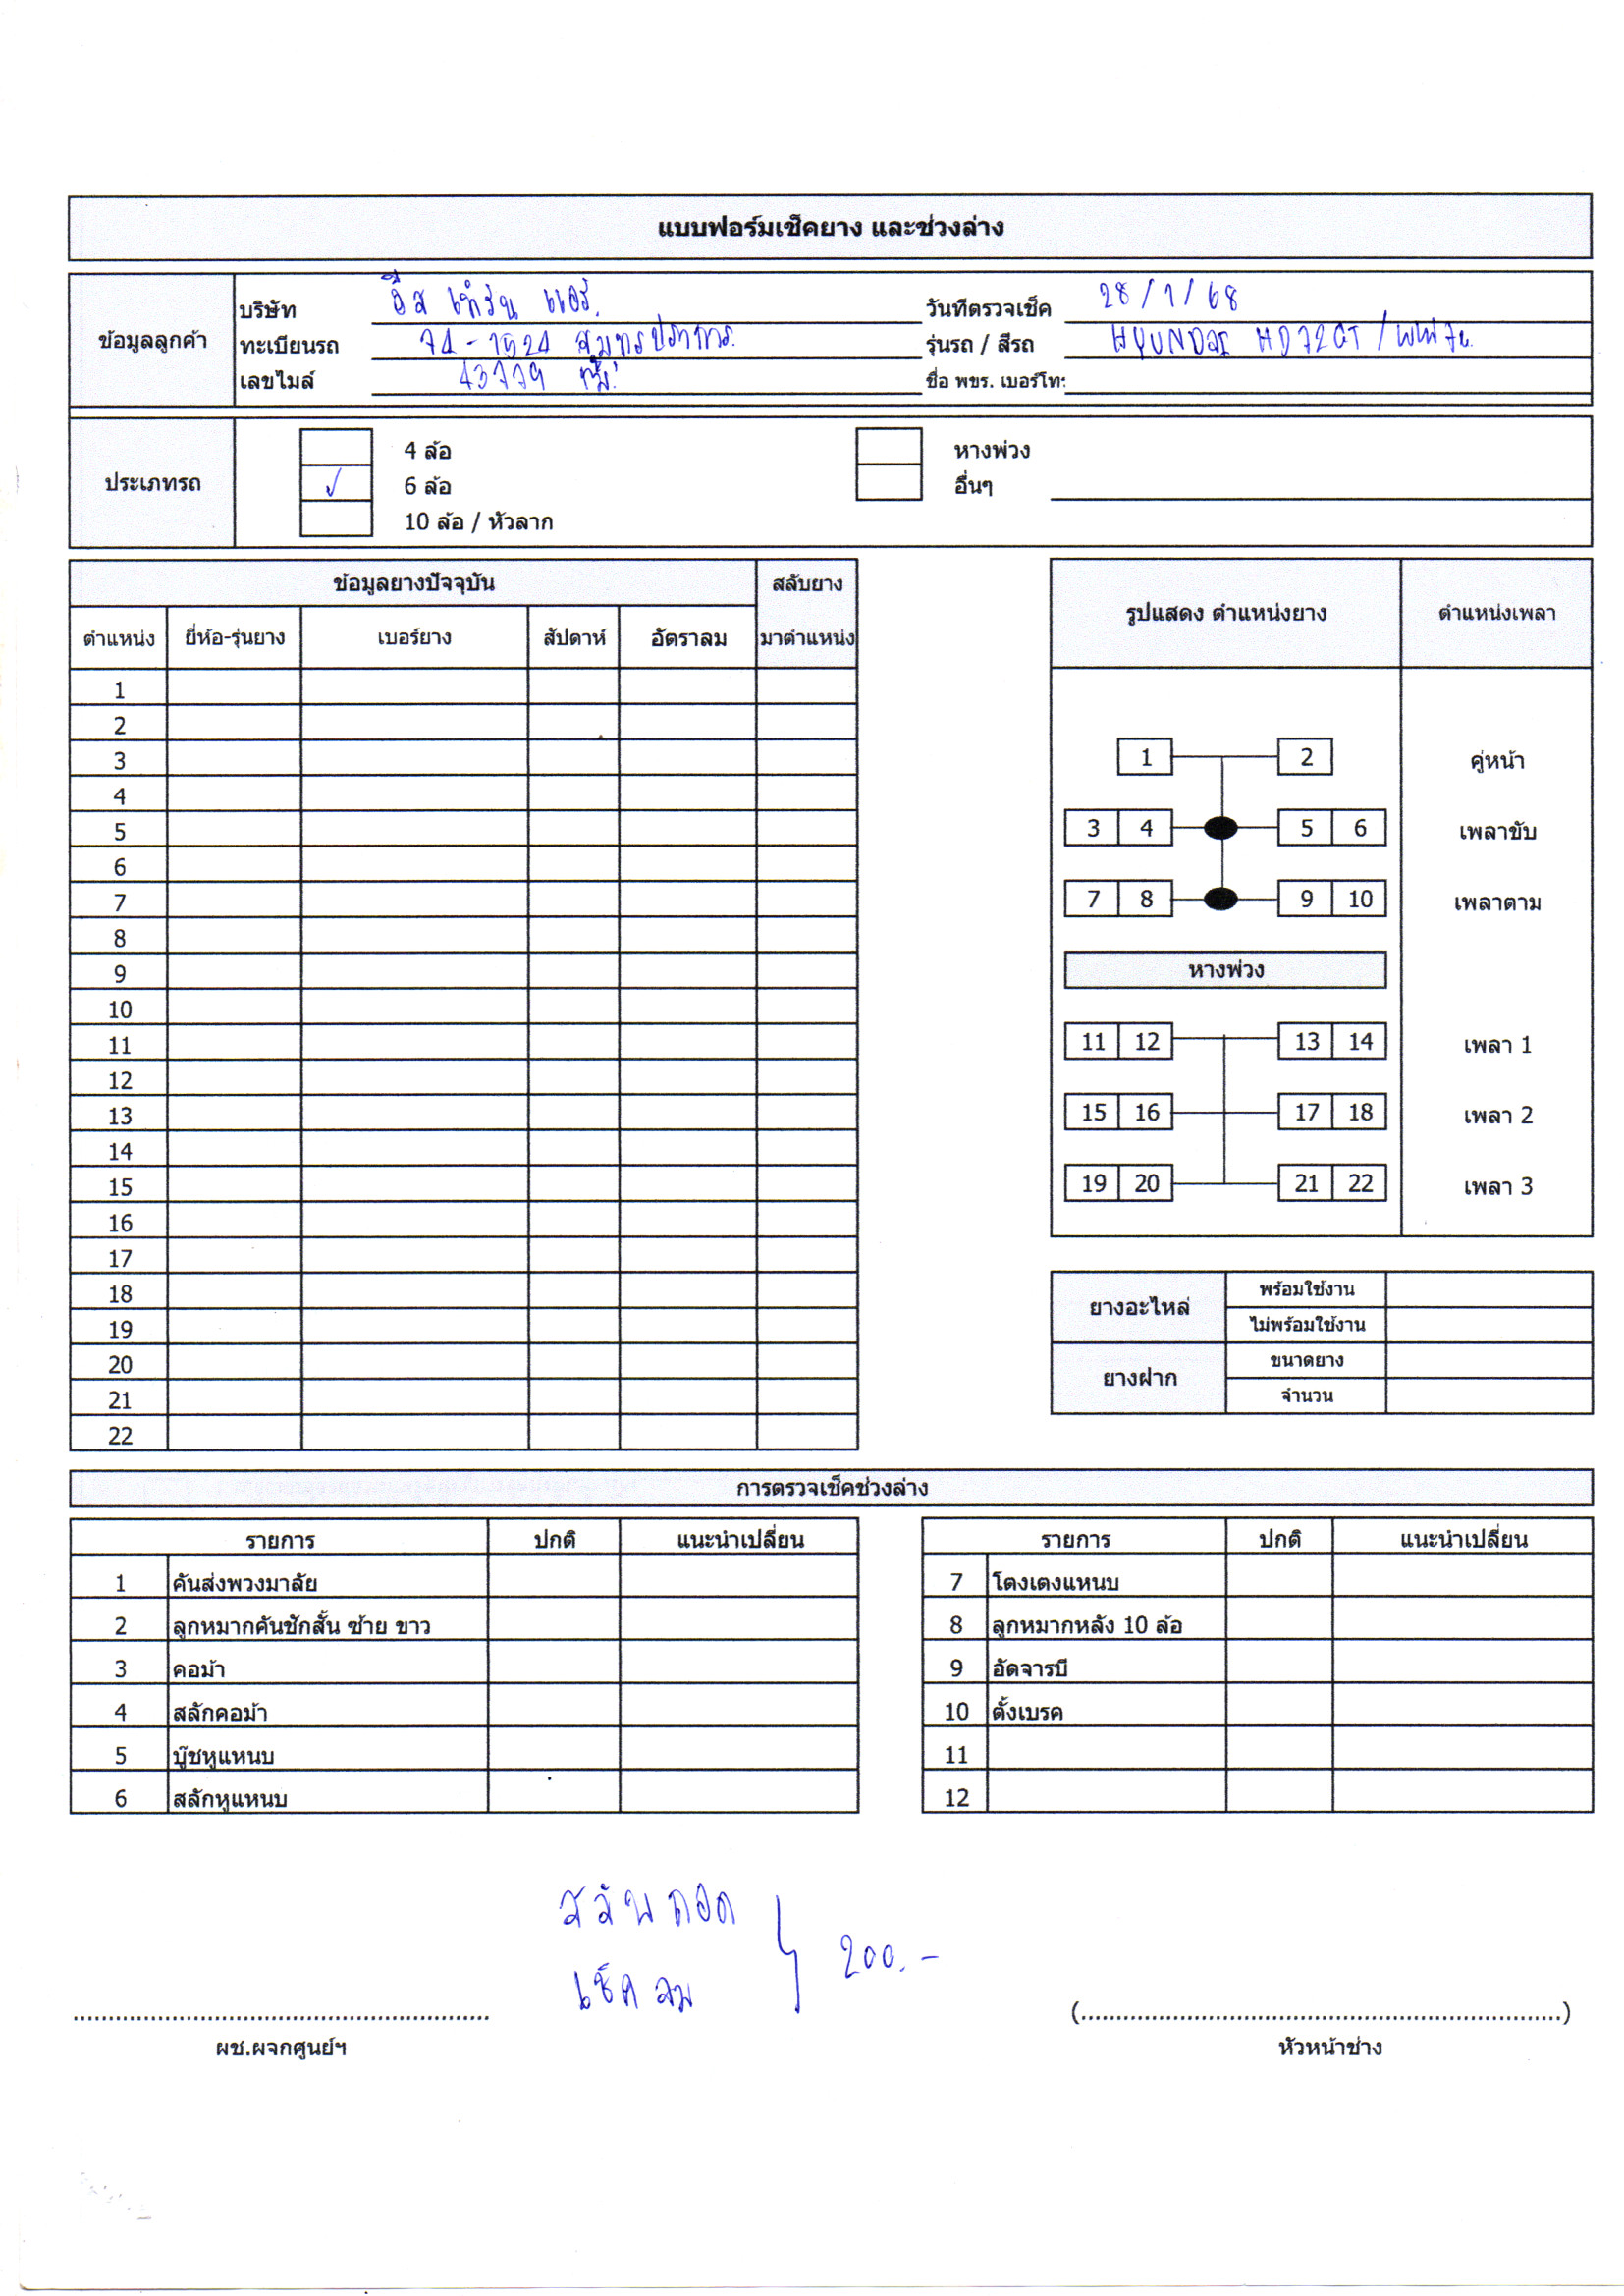 แบบฟอร์มเช็คยาง และช่วงล่าง
ข้อมูลลูกค้า
บริษัท อีสเทิร์น แอร์.
วันที่ตรวจเช็ค 28/1/68
ทะเบียนรถ สมุทรปราการ.
รุ่นรถ / สีรถ HYUNDAI HD72GT / White
เลขไมล์ 43779
ชื่อ พขร. เบอร์โทร
ประเภทรถ
4 ล้อ
✓ 6 ล้อ
10 ล้อ / หัวลาก
หางพ่วง
อื่นๆ
ข้อมูลยางปัจจุบัน สลับยาง
ตำแหน่ง ยี่ห้อ-รุ่นยาง เบอร์ยาง สัปดาห์ อัตราลม มาตำแหน่ง
1
2
3
4
5
6
7
8
9
10
11
12
13
14
15
16
17
18
19
20
21
22
รูปแสดง ตำแหน่งยาง ตำแหน่งเพลา
1 2 คู่หน้า
3 4 5 6 เพลาขับ
7 8 9 10 เพลาตาม
หางพ่วง
11 12 13 14 เพลา 1
15 16 17 18 เพลา 2
19 20 21 22 เพลา 3
ยางอะไหล่ พร้อมใช้งาน
ไม่พร้อมใช้งาน
ยางฝาก ขนาดยาง
จำนวน
การตรวจเช็คช่วงล่าง
รายการ ปกติ แนะนำเปลี่ยน
1 คันส่งพวงมาลัย
2 ลูกหมากคันชักสั้น ซ้าย ขาว
3 คอม้า
4 สลักคอม้า
5 บู๊ชหูแหนบ
6 สลักหูแหนบ
รายการ ปกติ แนะนำเปลี่ยน
7 โตงเตงแหนบ
8 ลูกหมากหลัง 10 ล้อ
9 อัดจารบี
10 ตั้งเบรค
11
12
สลับถอด
เช็คลม
200.-
ผช.ผจกศูนย์ฯ
(..............................)
หัวหน้าช่าง